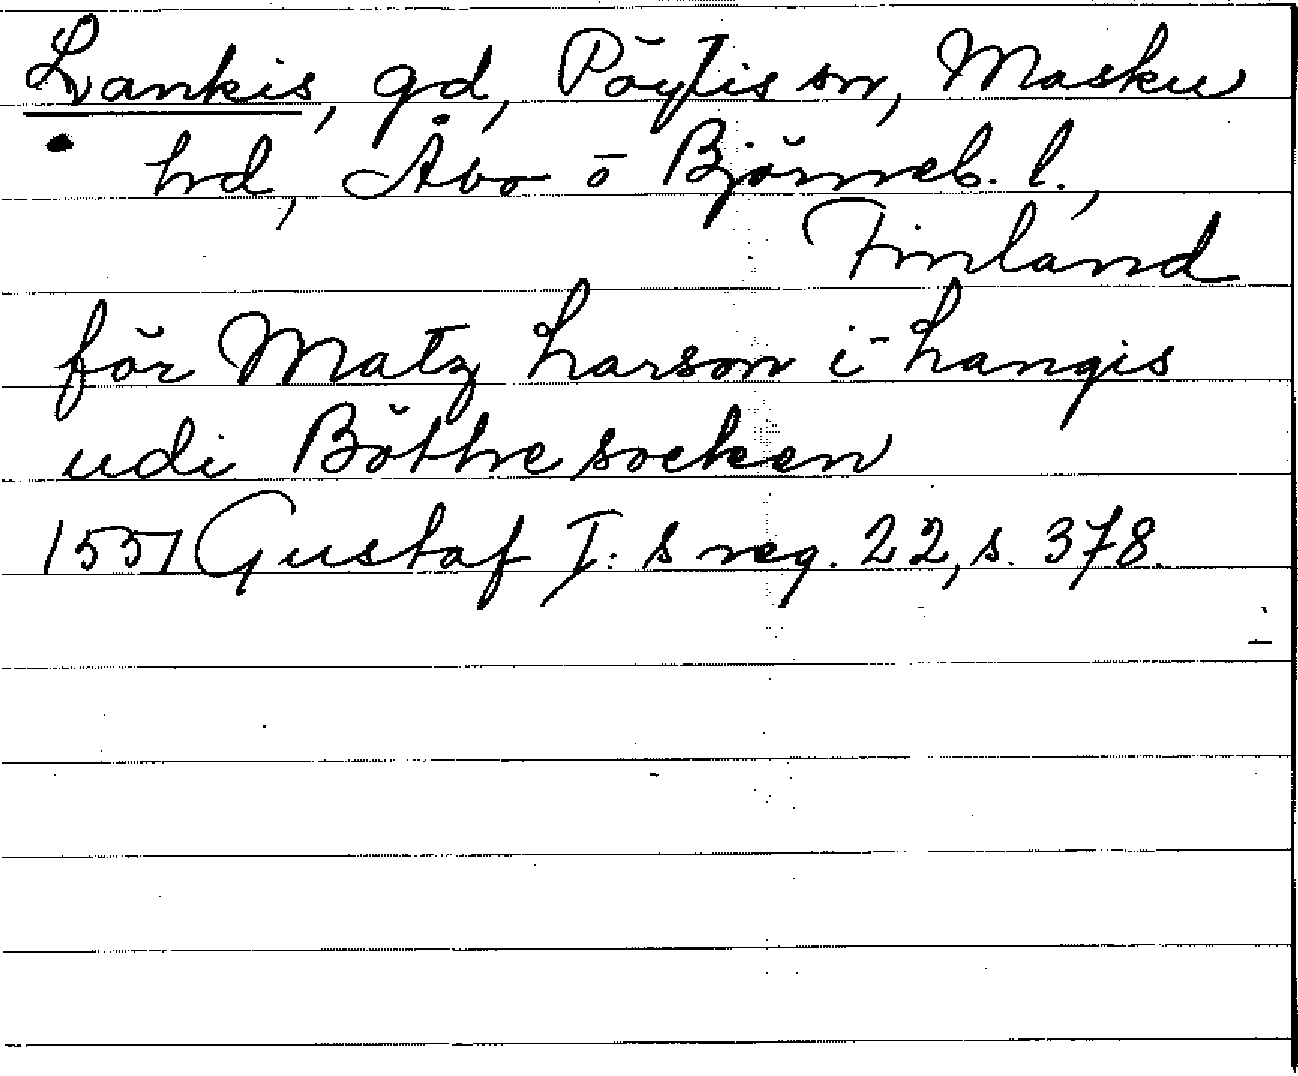 Lankis, gd, Pöytis sn, Masku
hd, Åbo o Björneb. l.,
Finland
för Matz Larson i Langis
udi Böthre socken
1551 Gustaf I:s reg. 22, s. 378.